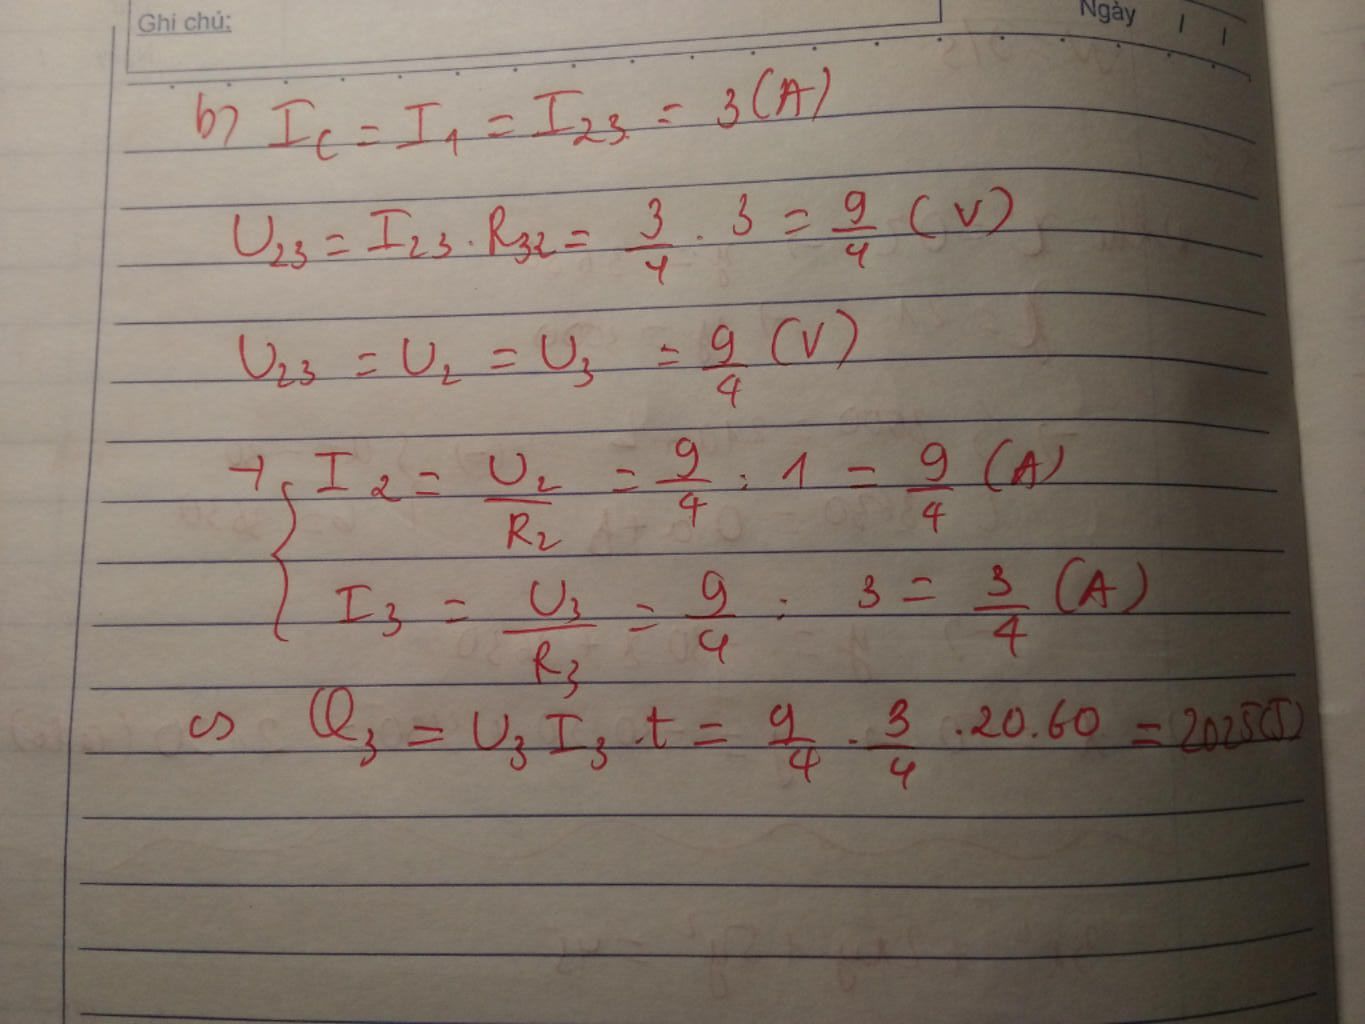 Ghi chú: Ngày
b) I_c = I_1 = I_23 = 3 (A)
U_23 = I_23 . R_32 = 3/4 . 3 = 9/4 (V)
U_23 = U_2 = U_3 = 9/4 (V)
→ { I_2 = U_2/R_2 = 9/4 : 1 = 9/4 (A)
I_3 = U_3/R_3 = 9/4 : 3 = 3/4 (A)
c) Q_3 = U_3 I_3 . t = 9/4 . 3/4 . 20.60 = 2025(J)